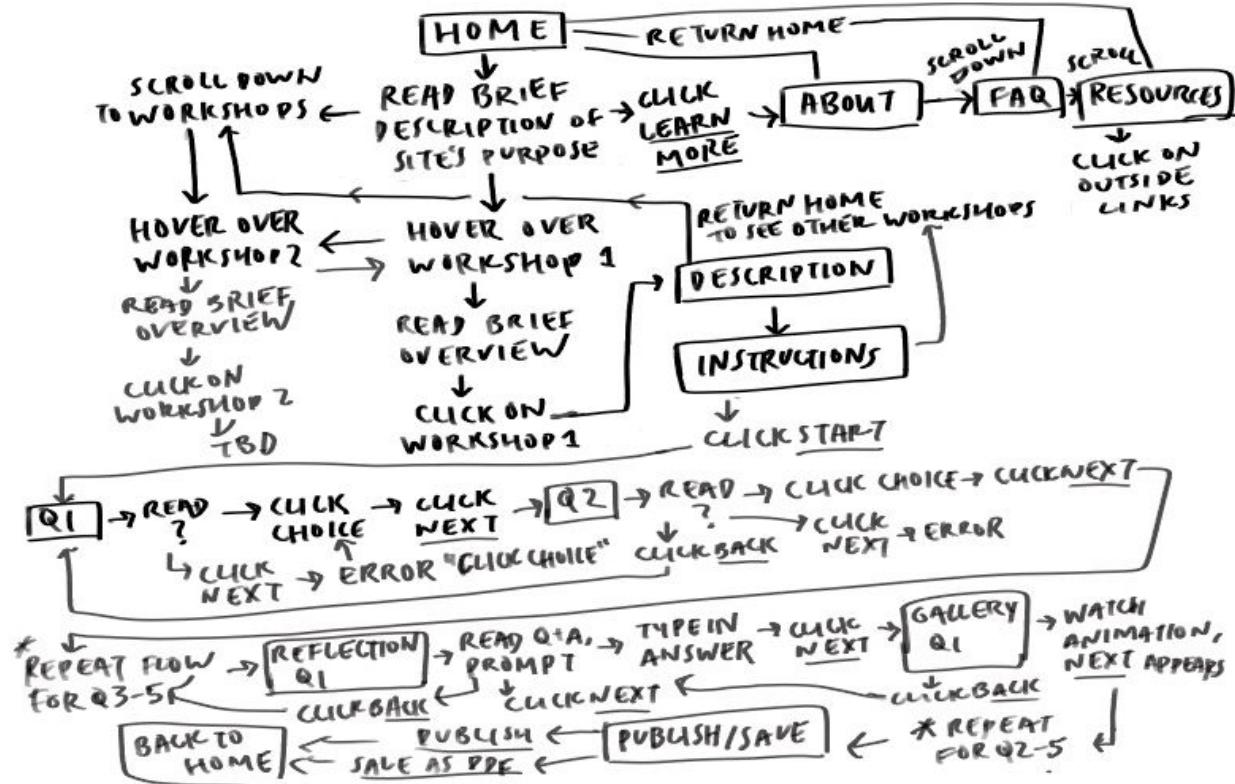 HOME
RETURN HOME
SCROLL DOWN
TO WORKSHOPS
READ BRIEF
DESCRIPTION OF
SITE'S PURPOSE
CLICK
LEARN
MORE
ABOUT
SCROLL
DOWN
FAQ
SCROLL
RESOURCES
CLICK ON
OUTSIDE
LINKS
HOVER OVER
WORKSHOP 2
READ BRIEF
OVERVIEW
CLICK ON
WORKSHOP 2
TBD
HOVER OVER
WORKSHOP 1
READ BRIEF
OVERVIEW
CLICK ON
WORKSHOP 1
RETURN HOME
TO SEE OTHER WORKSHOPS
DESCRIPTION
INSTRUCTIONS
CLICK START
Q1
READ
?
CLICK
CHOICE
CLICK
NEXT
Q2
READ
?
CLICK CHOICE
CLICK NEXT
CLICK
NEXT
ERROR "CLICK CHOICE"
CLICK BACK
CLICK
NEXT
ERROR
* REPEAT FLOW
FOR Q3-5
REFLECTION
Q1
READ Q+A,
PROMPT
TYPE IN
ANSWER
CLICK
NEXT
GALLERY
Q1
WATCH
ANIMATION,
NEXT APPEARS
CLICK BACK
CLICK NEXT
CLICK BACK
* REPEAT
FOR Q2-5
PUBLISH/SAVE
PUBLISH
SAVE AS PDF
BACK TO
HOME